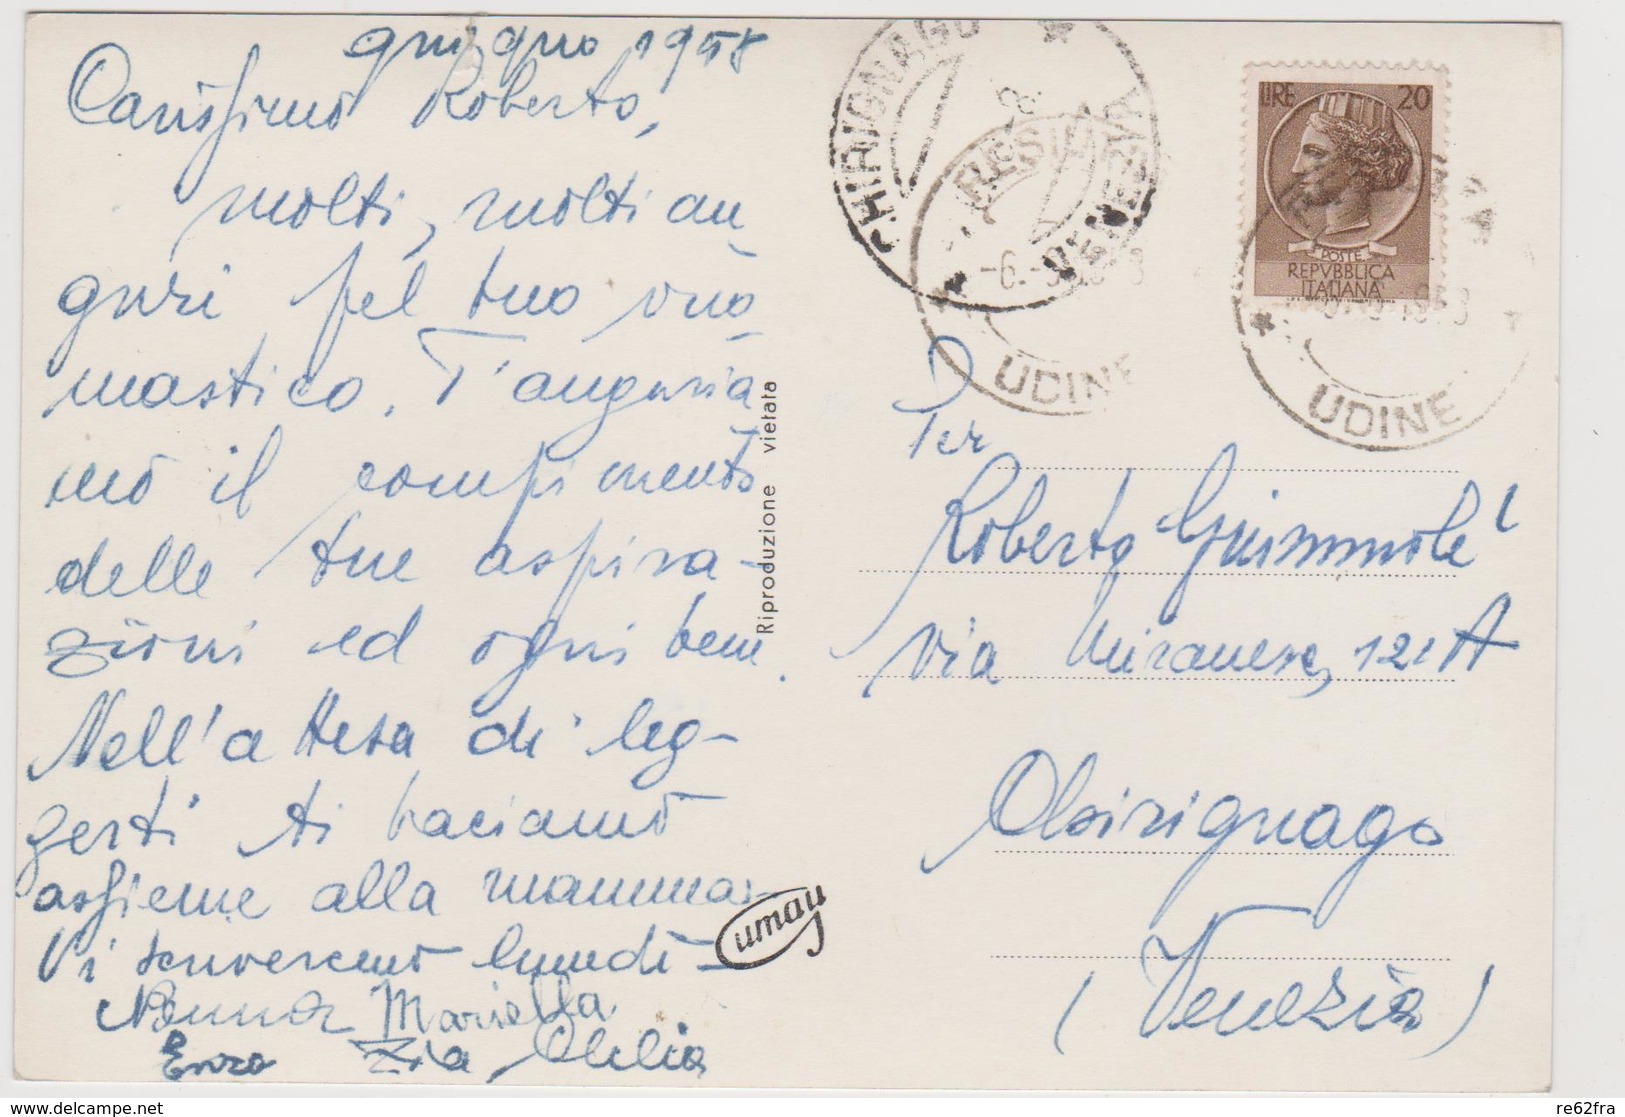 giugno 1958
Carissimo Roberto,
molti, molti au
guri pel tuo ono
mastico. T'auguria
mo il compimento
delle tue aspira-
zioni ed ogni bene.
Nell'attesa di leg-
gerti ti baciamo
assieme alla mamma.
Vi scriveremo lunedì -
Nonna Mariella
Enzo Zia Clelia
Riproduzione vietata
umay
CHIRIGNAGO
VENEZIA
RESIUTTA
-6.-
UDINE
LIRE 20
POSTE
REPVBBLICA
ITALIANA
UDINE
Per
Roberto
via Miranese, 121A
Chirignago
(Venezia)
re62fra
delcampe.net